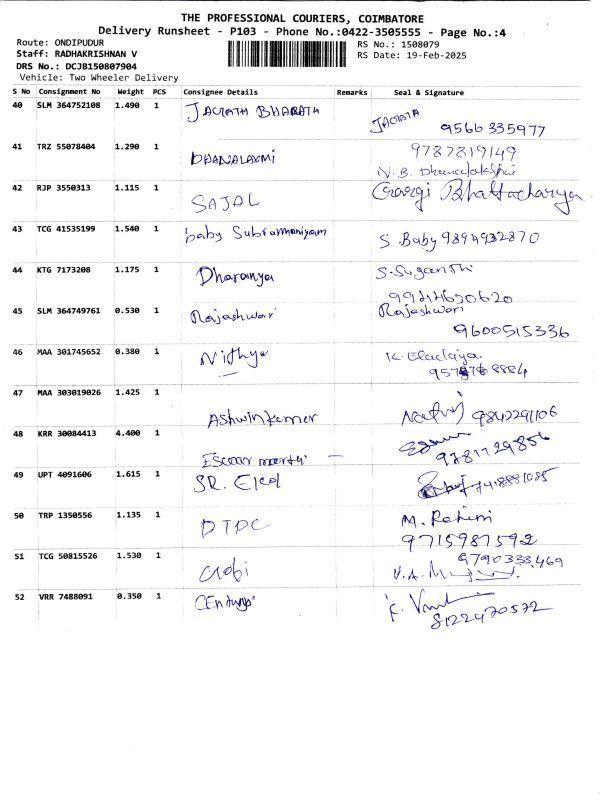 THE PROFESSIONAL COURIERS, COIMBATORE
Delivery Runsheet - P103 - Phone No.:0422-3505555 - Page No.:4
Route: ONDIPUDUR
RS No.: 1508079
Staff: RADHAKRISHNAN V
RS Date: 19-Feb-2025
DRS No.: DCJB150807904
Vehicle: Two Wheeler Delivery
S No Consignment No Weight PCS Consignee Details Remarks Seal & Signature
40 SLM 364752108 1.490 1 JAGRATH BHARATH
9566335977
41 TRZ 55078404 1.290 1 DHANALAXMI 9787819149
N. B. Dhanalakshmi
42 RJP 3550313 1.115 1 SAJAL Gargi Bhattacharya
43 TCG 41535199 1.540 1 baby Subramaniyam S. Baby 9894932870
44 KTG 7173208 1.175 1 Dharanya S. Suganthi
45 SLM 364749761 0.530 1 Rajashwari Rajeshwari
9600515336
46 MAA 301745652 0.380 1 Nithya
47 MAA 303019026 1.425 1 Ashwinkumar 9842291106
48 KRR 30084413 4.400 1 9781729856
49 UPT 4091606 1.615 1 SR.
50 TRP 1350556 1.135 1 DTPC M.
9715987592
51 TCG 50815526 1.530 1 Gobi 9790333469
52 VRR 7488091 0.350 1 CEntury
8122970572